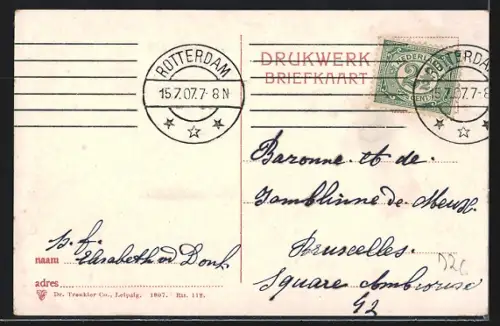 ROTTERDAM
15.7.07.7-8N
DRUKWERK
BRIEFKAART
NEDERLAND
2½
CENT
ROTTERDAM
15.7.07.7-8N
Baronne et de
Jamblinne de Meux
Bruxelles.
Square Ambrouse
42
p.f.
naam Elisabeth vd Donk
adres
Dr. Trenkler Co., Leipzig. 1907. Rtt. 112.